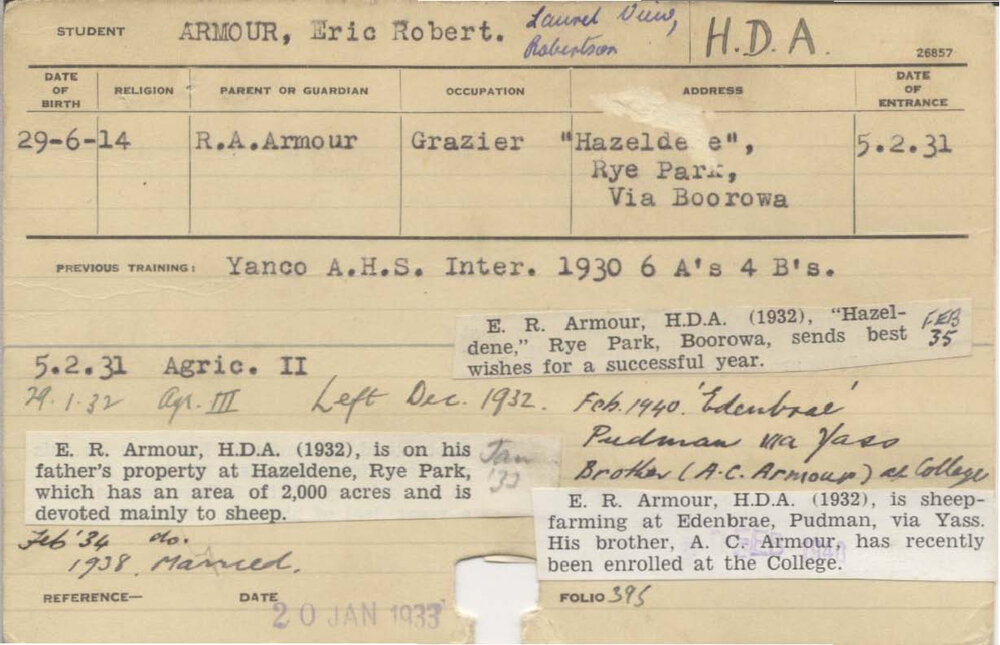 STUDENT ARMOUR, Eric Robert. Laurel View, Robertson H.D.A. 26857
DATE OF BIRTH RELIGION PARENT OR GUARDIAN OCCUPATION ADDRESS DATE OF ENTRANCE
29-6-14 R.A.Armour Grazier "Hazelde e", 5.2.31
Rye Park,
Via Boorowa
PREVIOUS TRAINING: Yanco A.H.S. Inter. 1930 6 A's 4 B's.
E. R. Armour, H.D.A. (1932), "Hazel-
dene," Rye Park, Boorowa, sends best
wishes for a successful year.
FEB
35
5.2.31 Agric. II
29.1.32 Agr. III Left Dec. 1932.
Feb. 1940. 'Edenbrae'
Pudman via Yass
Brother (A.C. Armour) at College
E. R. Armour, H.D.A. (1932), is on his
father's property at Hazeldene, Rye Park,
which has an area of 2,000 acres and is
devoted mainly to sheep.
Jan
'33
E. R. Armour, H.D.A. (1932), is sheep-
farming at Edenbrae, Pudman, via Yass.
His brother, A. C. Armour, has recently
been enrolled at the College.
FEB 1940
Feb '34 do.
1938. Married.
REFERENCE— DATE 20 JAN 1933 FOLIO 395